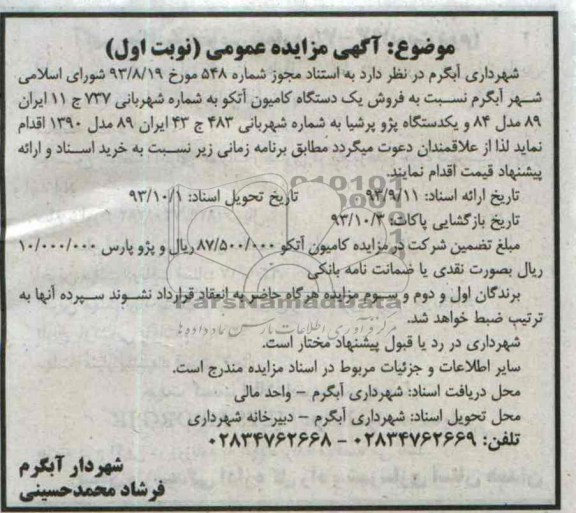 موضوع: آگهی مزایده عمومی (نوبت اول)
شهرداری آبگرم در نظر دارد به استناد مجوز شماره ۵۴۸ مورخ ۹۳/۸/۱۹ شورای اسلامی
شهر آبگرم نسبت به فروش یک دستگاه کامیون آتکو به شماره شهربانی ۷۳۷ ج ۱۱ ایران
۸۹ مدل ۸۴ و یکدستگاه پژو پرشیا به شماره شهربانی ۴۸۳ ج ۴۳ ایران ۸۹ مدل ۱۳۹۰ اقدام
نماید لذا از علاقمندان دعوت میگردد مطابق برنامه زمانی زیر نسبت به خرید اسناد و ارائه
پیشنهاد قیمت اقدام نمایند.
تاریخ ارائه اسناد: ۹۳/۹/۱۱ تاریخ تحویل اسناد: ۹۳/۱۰/۱
تاریخ بازگشایی پاکات: ۹۳/۱۰/۴
مبلغ تضمین شرکت در مزایده کامیون آتکو ۸۷/۵۰۰/۰۰۰ ریال و پژو پارس ۱۰/۰۰۰/۰۰۰
ریال بصورت نقدی یا ضمانت نامه بانکی
برندگان اول و دوم و سوم مزایده هرگاه حاضر به انعقاد قرارداد نشوند سپرده آنها به
ParsNamadData
ترتیب ضبط خواهد شد.
مرکز فرآوری اطلاعات پارس نماد داده ها
شهرداری در رد یا قبول پیشنهاد مختار است.
سایر اطلاعات و جزئیات مربوط در اسناد مزایده مندرج است.
محل دریافت اسناد: شهرداری آبگرم – واحد مالی
محل تحویل اسناد: شهرداری آبگرم – دبیرخانه شهرداری
تلفن: ۰۲۸۳۴۷۶۲۶۶۹ – ۰۲۸۳۴۷۶۲۶۶۸
شهردار آبگرم
فرشاد محمدحسینی